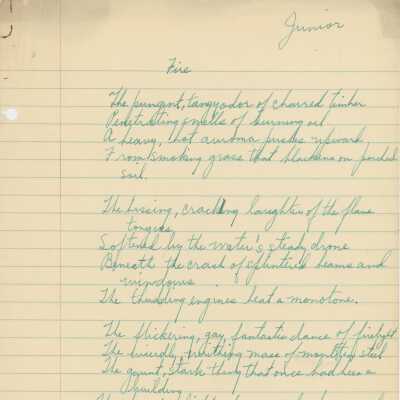 Junior
Fire
The pungent, tangy odor of charred timber
Penetrating smells of burning oil
A heavy, hot auroma pushes upward,
From smoking grass that blackens on parched
soil.
The hissing, crackling laughter of the flame
tongues,
Softened by the water's steady drone
Beneath the crash of splintered beams and
windows
The thudding engines beat a monotone.
The flickering, gay, fantastic dance of firelight
The luridly, writhing mass of monstrous steel
The gaunt, stark thing that once had been a
building